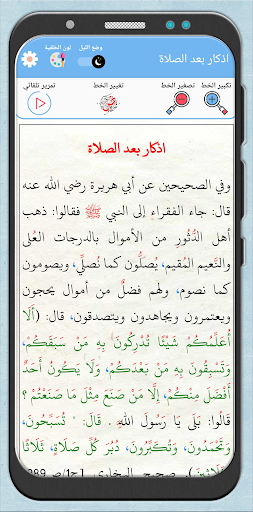 اذكار بعد الصلاة
وضع الليل
لون الخلفية
تكبير الخط
تصغير الخط
تغيير الخط
تمرير تلقائي
اذكار بعد الصلاة
وفي الصحيحين عن أبي هريرة رضي الله عنه
قال: جاء الفقراء إلى النبي ﷺ فقالوا: ذهب
أهل الدُّثُورِ من الأموال بالدرجات العُلى
والنَّعيم المُقيم، يُصلُّون كما نُصلِّي، ويصومون
كما نصوم، ولهم فضلٌ من أموال يحجون
ويعتمرون ويجاهدون ويتصدقون، قال: (أَلَا
أُعَلِّمُكُمْ شَيْئًا تُدْرِكُونَ بِهِ مَنْ سَبَقَكُمْ،
وَتَسْبِقُونَ بِهِ مَنْ بَعْدَكُمْ، وَلَا يَكُونُ أَحَدٌ
أَفْضَلَ مِنْكُمْ، إِلَّا مَنْ صَنَعَ مِثْلَ مَا صَنَعْتُمْ ؟
قَالُوا: بَلَى يَا رَسُولَ اللهِ . قَالَ: " تُسَبِّحُونَ،
وَتَحْمَدُونَ، وَتُكَبِّرُونَ، دُبُرَ كُلِّ صَلَاةٍ، ثَلَاثًا
وَثَلَاثِينَ). صحيح البخاري